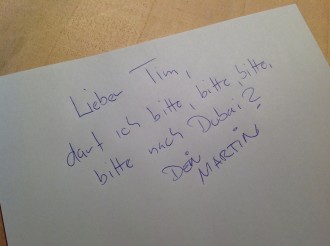 Lieber Tim,
darf ich bitte, bitte, bitte,
bitte nach Dubai?
Dein
MARTIN